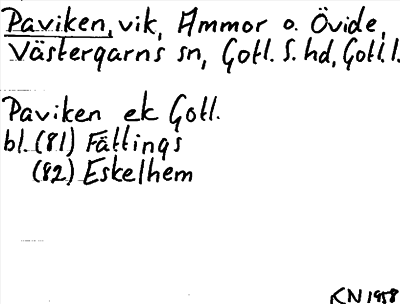 Paviken, vik, Ammor o. Övide,
Västergarns sn, Gotl. S. hd, Gotl. l.
Paviken ek Gotl.
bl. (81) Fättings
(82) Eskelhem
KN 1958